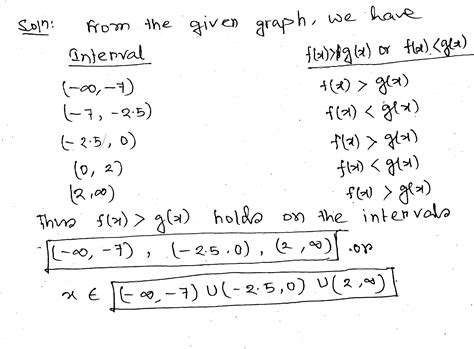 Soln: From the given graph, we have
Interval f(x)>g(x) or f(x)<g(x)
(-∞, -7) f(x) > g(x)
(-7, -2.5) f(x) < g(x)
(-2.5, 0) f(x) > g(x)
(0, 2) f(x) < g(x)
(2, ∞) f(x) > g(x)
Thus f(x) > g(x) holds on the intervals
(-∞, -7), (-2.5, 0), (2, ∞) or
x ∈ (-∞, -7) ∪ (-2.5, 0) ∪ (2, ∞)